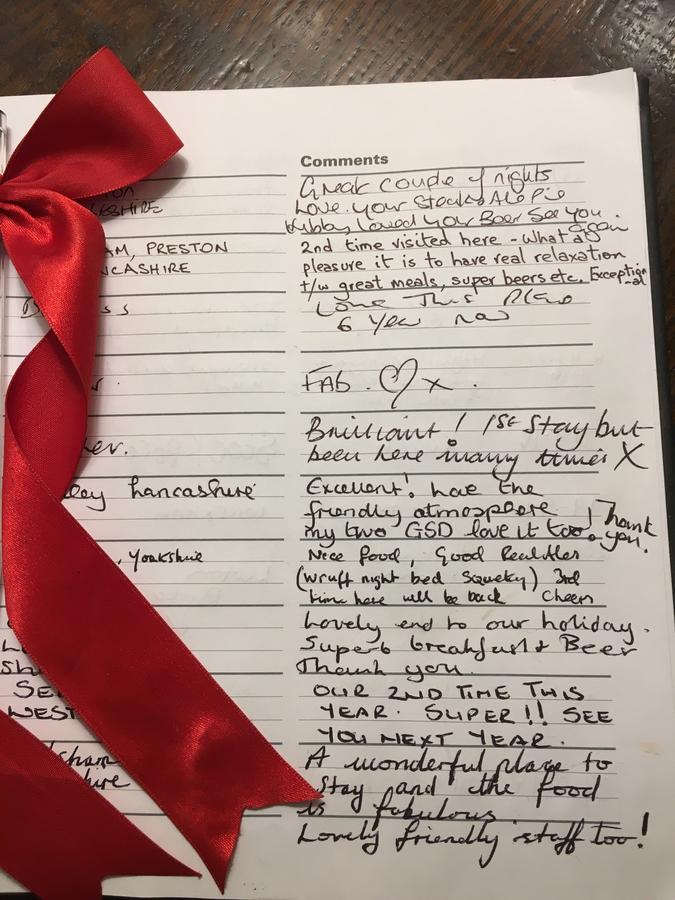 Comments
Great couple of nights
Love your Steak & Ale Pie
Hubby loved your Beer See you
again
AM, PRESTON
NCASHIRE
2nd time visited here - What a
pleasure it is to have real relaxation
t/w great meals, super beers etc. Exception
-al
Love This Place
6 Year now
FAB. ♡ x.
Brilliant! 1st Stay but
been here many times X
ey Lancashire
Excellent! love the
friendly atmosphere
my two GSD love it too! Thank
you.
, Yorkshire
Nice food, Good Real Ales
(wruft night bed squeky) 3rd
time here will be back Cheers
Lovely end to our holiday.
Superb breakfast & Beer
Thank you.
SE
WEST
OUR 2ND TIME THIS
YEAR. SUPER!! SEE
YOU NEXT YEAR.
sham
hire
A wonderful place to
stay and the food
is fabulous.
Lovely friendly staff too!